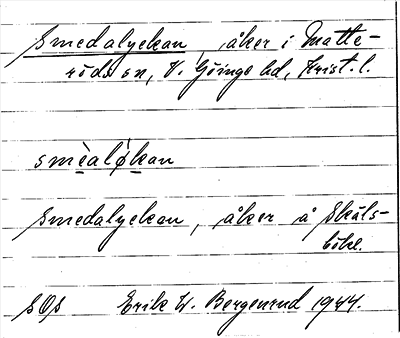 Smedalyckan, åker i Matte-
röds sn, V. Göinge hd, Krist. l.
smèalǫ́kan
Smedalyckan, åker å Skåls-
böke.
SOS Erik W. Bergenrud 1944.